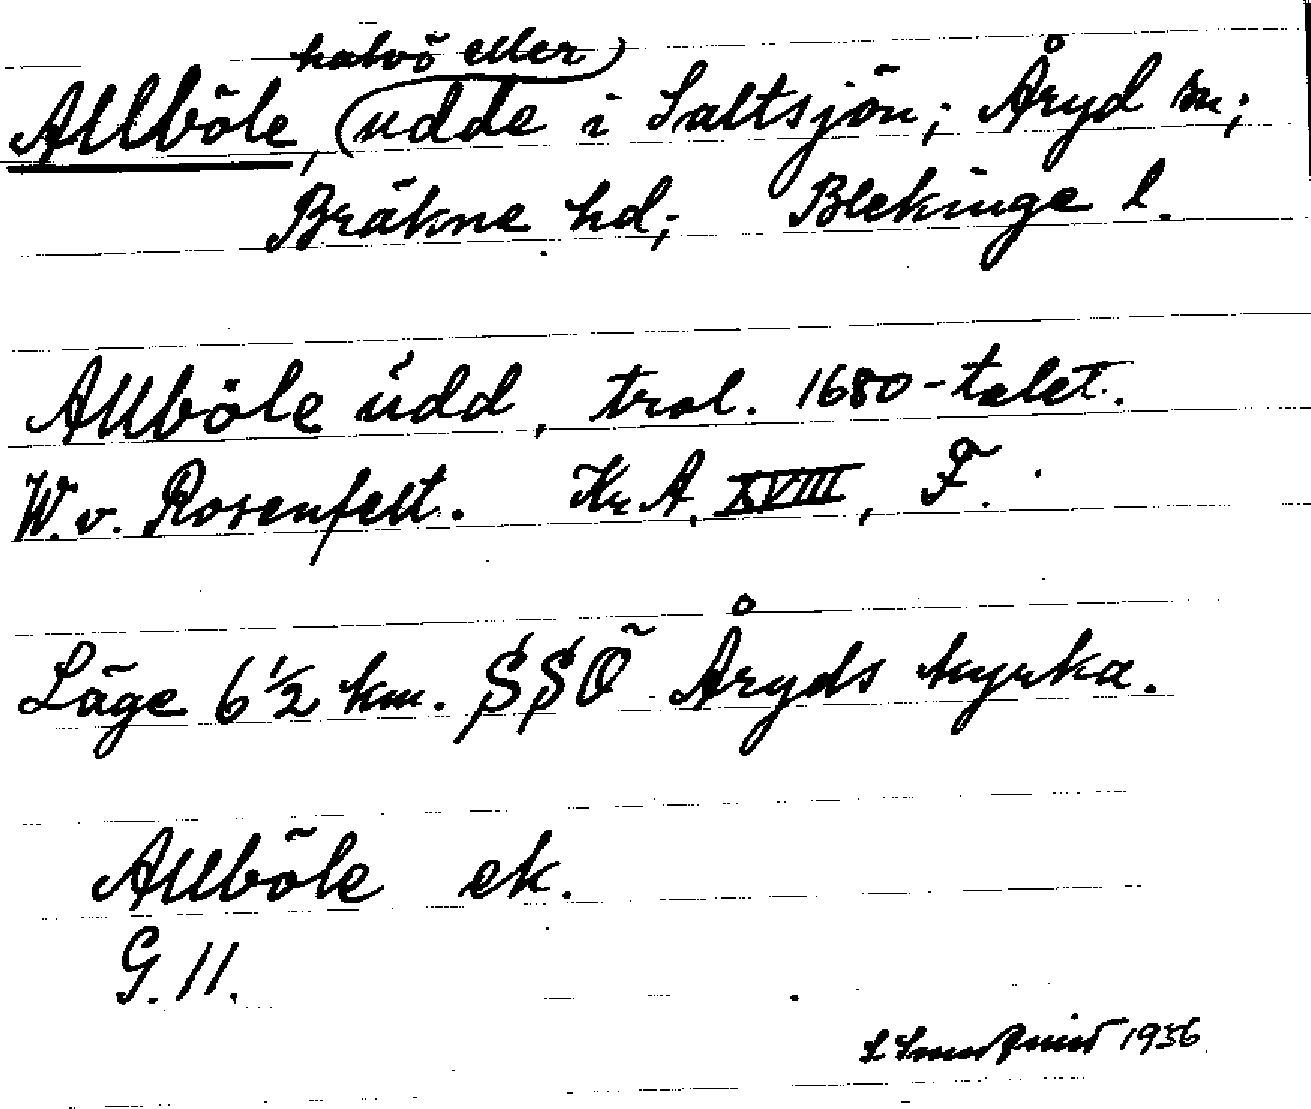 halvö eller
Allböle, (udde) i Saltsjön; Åryd sn;
Bräkne hd; Blekinge l.
Allböle üdd, trol. 1680-talet.
W. v. Rosenfelt. Kr A, XVIII, F.
Läge 6 1/2 km. SSÖ Åryds kyrka.
Allböle ek.
G. 11.
1936